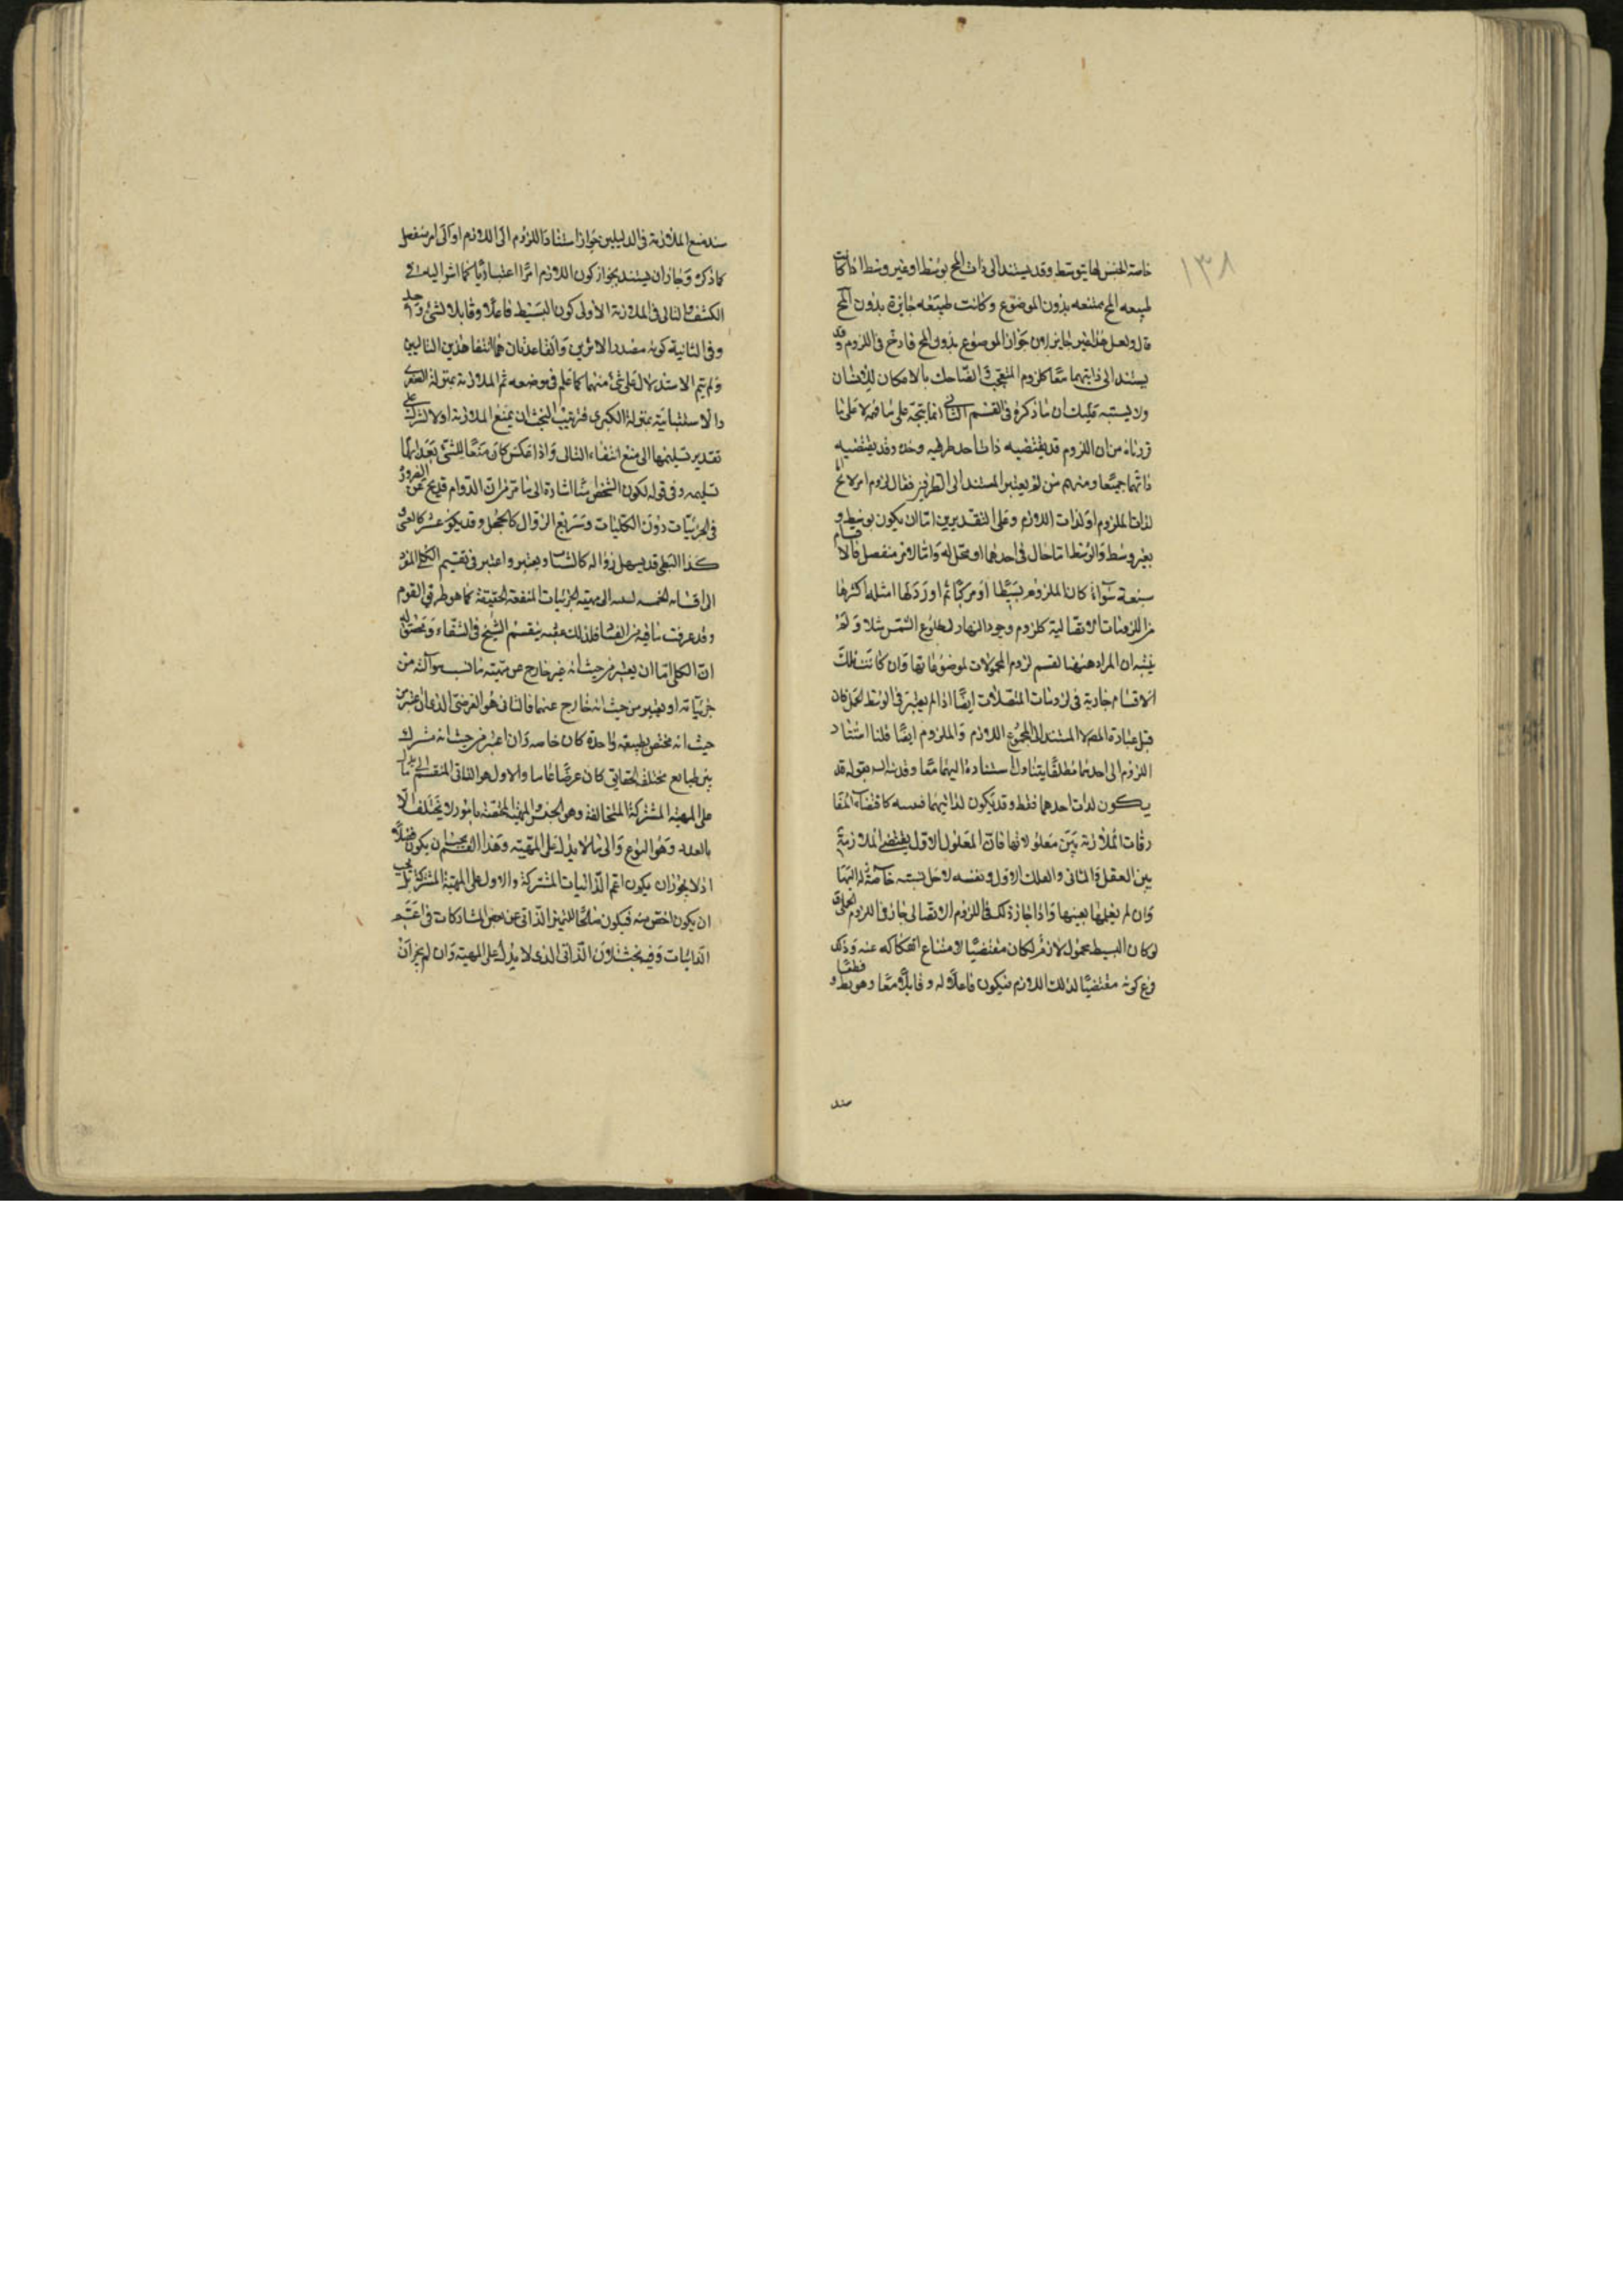 ١٣٨
خاصة الجنس لها بتوسط وقد يستند الى ذات المح بوسط او غير وسط اذا كانت
طبيعه المح ممتنعه بدون الموضوع وكانت طبيعه جايزة بدون المح
قال ولعل هذا غير جايز لان جواز الموضوع بدون المح قادح فى اللزوم وقد
يستند الى ذاتيهما معا كلزوم المتعجب الضاحك بالامكان للانسان
ولا يشتبه عليك ان ما ذكره فى القسم الثانى انما يتجه على ما فهمه لا على ما
قررناه من ان اللزوم قد يقتضيه ذات احد طرفيه وحده وقد يقتضيه
ذاتهما جميعا ومنهم من لم يعتبر المستند الى الطرفين فقال لزوم امر لاخر اما
لذات الملزوم او لذات اللازم وعلى التقديرين اما ان يكون بوسط او
بغير وسط والوسط اما حال فى احدهما او محل له واما لامر منفصل فالاقسام
سبعة سواء كان الملزوم بسيطا او مركبا ثم اورد لها امثله اكثرها
من اللزوميات الاتصالية كلزوم وجود النهار لطلوع الشمس مثلا ولم
يتنبه ان المراد ههنا تقسيم لزوم المحمولات لموضوعاتها وان كانت تلك
الاقسام جارية فى لزوميات المتصلات ايضا اذا لم يعتبر فى الوسط الحمل فان
قيل عبارة المص لا المستند الى مجموع اللازم والملزوم ايضا قلنا استناد
اللزوم الى احدهما مطلقا يتناول استناده اليهما معا وقد نبه بقوله قد
يكون لذات احدهما فقط وقد يكون لذاتيهما كاقتضاء المفا
رقات الملازمة بين معلولاتها فان المعلول الاول يقتضى الملازمة
بين العقل الثانى والفلك الاول ونفسه لاجل نسبته خاصة له اليها
وان لم يعلمها بعينها واذا جاز ذلك فى اللزوم الاتصالى جاز فى اللزوم الحملى قال
لو كان البسيط محمول لازم لكان مقتضيا لامتناع انفكاكه عنه وذلك
فرع كونه مقتضيا لذلك اللازم فيكون فاعلا له وقابلا معا وهو بط قطعا و
سند
سند منع الملازمة فى الدليلين جواز استناد اللزوم الى اللازم او الى امر منفصل
كما ذكره وجاز ان يستند بجواز كون اللازم امرا اعتباريا كما اشر اليه فى
الكشف والتالى فى الملازمة الاولى كون البسيط فاعلا وقابلا لشئ واحد
وفى الثانية كونه مصدر الاثرين والقاعدتان هما انتفاء هذين التاليين
ولم يتم الاستدلال على شئ منهما كما علم فى موضعه ثم الملازمة بمنزلة الصغرى
والاستثنائية بمنزلة الكبرى فترتيب البحث ان يمنع الملازمة اولا ثم يترك على
تقدير تسليمها الى منع انتفاء التالى واذا عكس كان منعا للشئ بعد ايهام
تسليمه وفى قوله لكون الشخص اشارة الى ما مر من ان الدوام قد يخ عن الضرورة
فى الجزئيات دون الكليات وسريع الزوال كالخجل وقد يكون عسرا كالعشق و
كذا البطئ قد يسهل زواله كالشباب ويعتبر واعتبر فى تقسيم الكلى المفرد
الى اقسامه الخمسه نسبته الى مهية الجزئيات المتفقة الحقيقة كما هو طريق القوم
وقد عرفت ما فيه من الفساد فلذلك عقبه بتقسيم الشيخ فى الشفاء وتحقيق له
ان الكلى اما ان يعتبر من حيث انه غير خارج عن مهية ما نسب هو اليه من
جزئياته او يعتبر من حيث انه خارج عنها فالثانى هو العرضى الذى ان اعتبر من
حيث انه مختص بطبيعة واحدة كان خاصه وان اعتبر من حيث انه مشترك
بين طبايع مختلفة الحقايق كان عرضا عاما والاول هو الذاتى المنقسم الى ما يدل
على المهية المشتركة المتخالفة وهو الجنس او المهية المختصة بامور لا تختلف الا
بالعدد وهو النوع والى ما لا يدل على المهية وهذا القسم يجب ان يكون فصلا
اذ لا يجوز ان يكون اعم الذاتيات المشتركة والا دل على المهية المشتركة بل يجب
ان يكون اخص منه فيكون صالحا للتميز الذاتى عن بعض المشاركات فى اعم
الذاتيات وفيه بحث لان الذاتى الذى لا يدل على المهية وان لم يجز ان